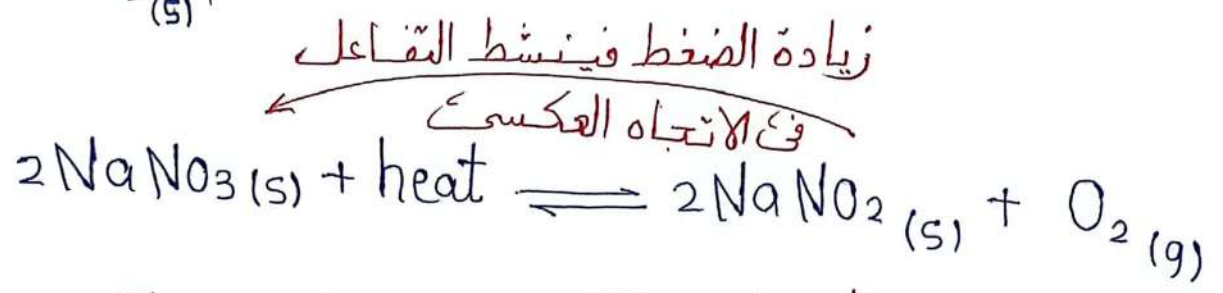 (s)
زيادة الضغط فينشط التفاعل
فى الاتجاه العكسى
2NaNO3(s) + heat ⇌ 2NaNO2(s) + O2(g)